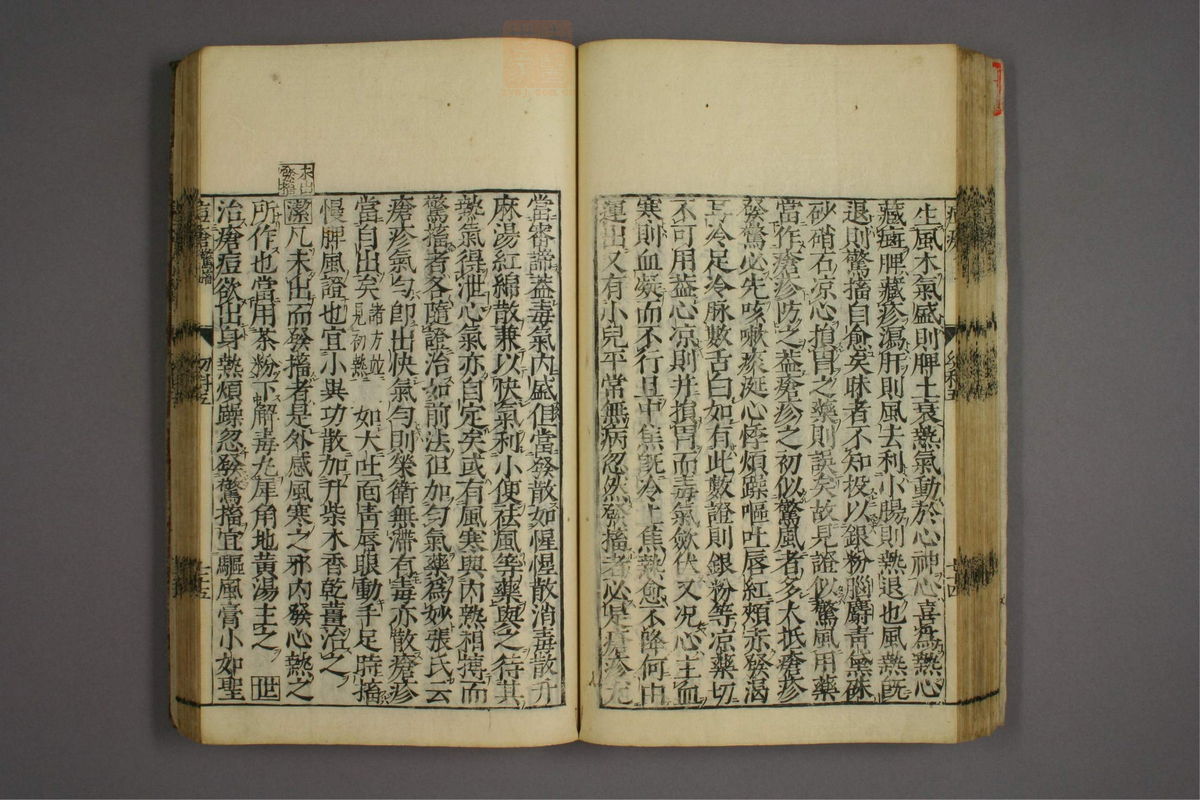 生風木氣盛則脾土衰熱氣動於心神心喜為熱心
藏痘脾藏疹瀉肝則風去利小腸則熱退也風熱既
退則驚搐自愈矣昧者不知投以銀粉腦麝青黛硃
砂硝石凉心損胃之藥則誤矣故見證似驚風用藥
當作瘡疹防之蓋瘡疹之初似驚風者多大抵瘡疹
發驚必先咳嗽痰涎心悸煩躁嘔吐唇紅頰赤發渴
耳冷足冷脉數舌白如有此數證則銀粉等凉藥切
不可用蓋心凉則并損胃而毒氣斂伏又况心主血
寒則血凝而不行且中焦既冷上焦熱愈不降何由
運出又有小兒平常無病忽然發搐者必是瘡疹尤
當審諦蓋毒氣內盛但當發散如惺惺散消毒散升
麻湯紅綿散兼以快氣利小便祛風等藥與之待其
熱氣得泄心氣亦自定矣或有風寒與內熱相搏而
驚搐者各隨證治如前法但加勻氣藥為妙張氏云
瘡疹氣勻即出快氣勻則榮衛無滯有毒亦散瘡疹
當自出矣諸方並見初熱 如大吐面青唇眼動手足時搐
慢脾風證也宜小異功散加升柴木香乾薑治之
未出發搐
潔凡未出而發搐者是外感風寒之邪內發心熱之
所作也當用茶粉下解毒丸犀角地黃湯主之 世
治瘡痘欲出身熱煩躁忽發驚搐宜驅風膏小如聖